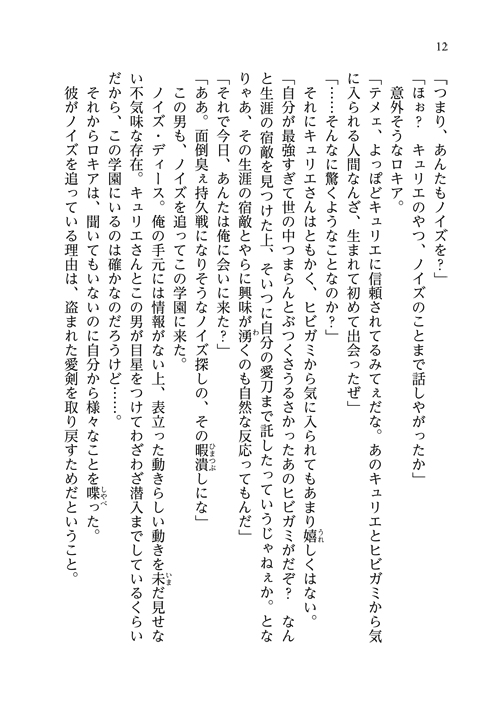 12
「つまり、あんたもノイズを？」
「ほぉ？　キュリエのやつ、ノイズのことまで話しやがったか」
意外そうなロキア。
「テメェ、よっぽどキュリエに信頼されてるみてぇだな。あのキュリエとヒビガミから気
に入られる人間なんざ、生まれて初めて出会ったぜ」
「……そんなに驚くようなことなのか？」
それにキュリエさんはともかく、ヒビガミから気に入られてもあまり嬉しくはない。
「自分が最強すぎて世の中つまらんとぶつくさうるさかったあのヒビガミがだぞ？　なん
と生涯の宿敵を見つけた上、そいつに自分の愛刀まで託したっていうじゃねぇか。とな
りゃあ、その生涯の宿敵とやらに興味が湧くのも自然な反応ってもんだ」
「それで今日、あんたは俺に会いに来た？」
「ああ。面倒臭ぇ持久戦になりそうなノイズ探しの、その暇潰しにな」
この男も、ノイズを追ってこの学園に来た。
ノイズ・ディース。俺の手元には情報がない上、表立った動きらしい動きを未だ見せな
い不気味な存在。キュリエさんとこの男が目星をつけてわざわざ潜入までしているくらい
だから、この学園にいるのは確かなのだろうけど……。
それからロキアは、聞いてもいないのに自分から様々なことを喋った。
彼がノイズを追っている理由は、盗まれた愛剣を取り戻すためだということ。